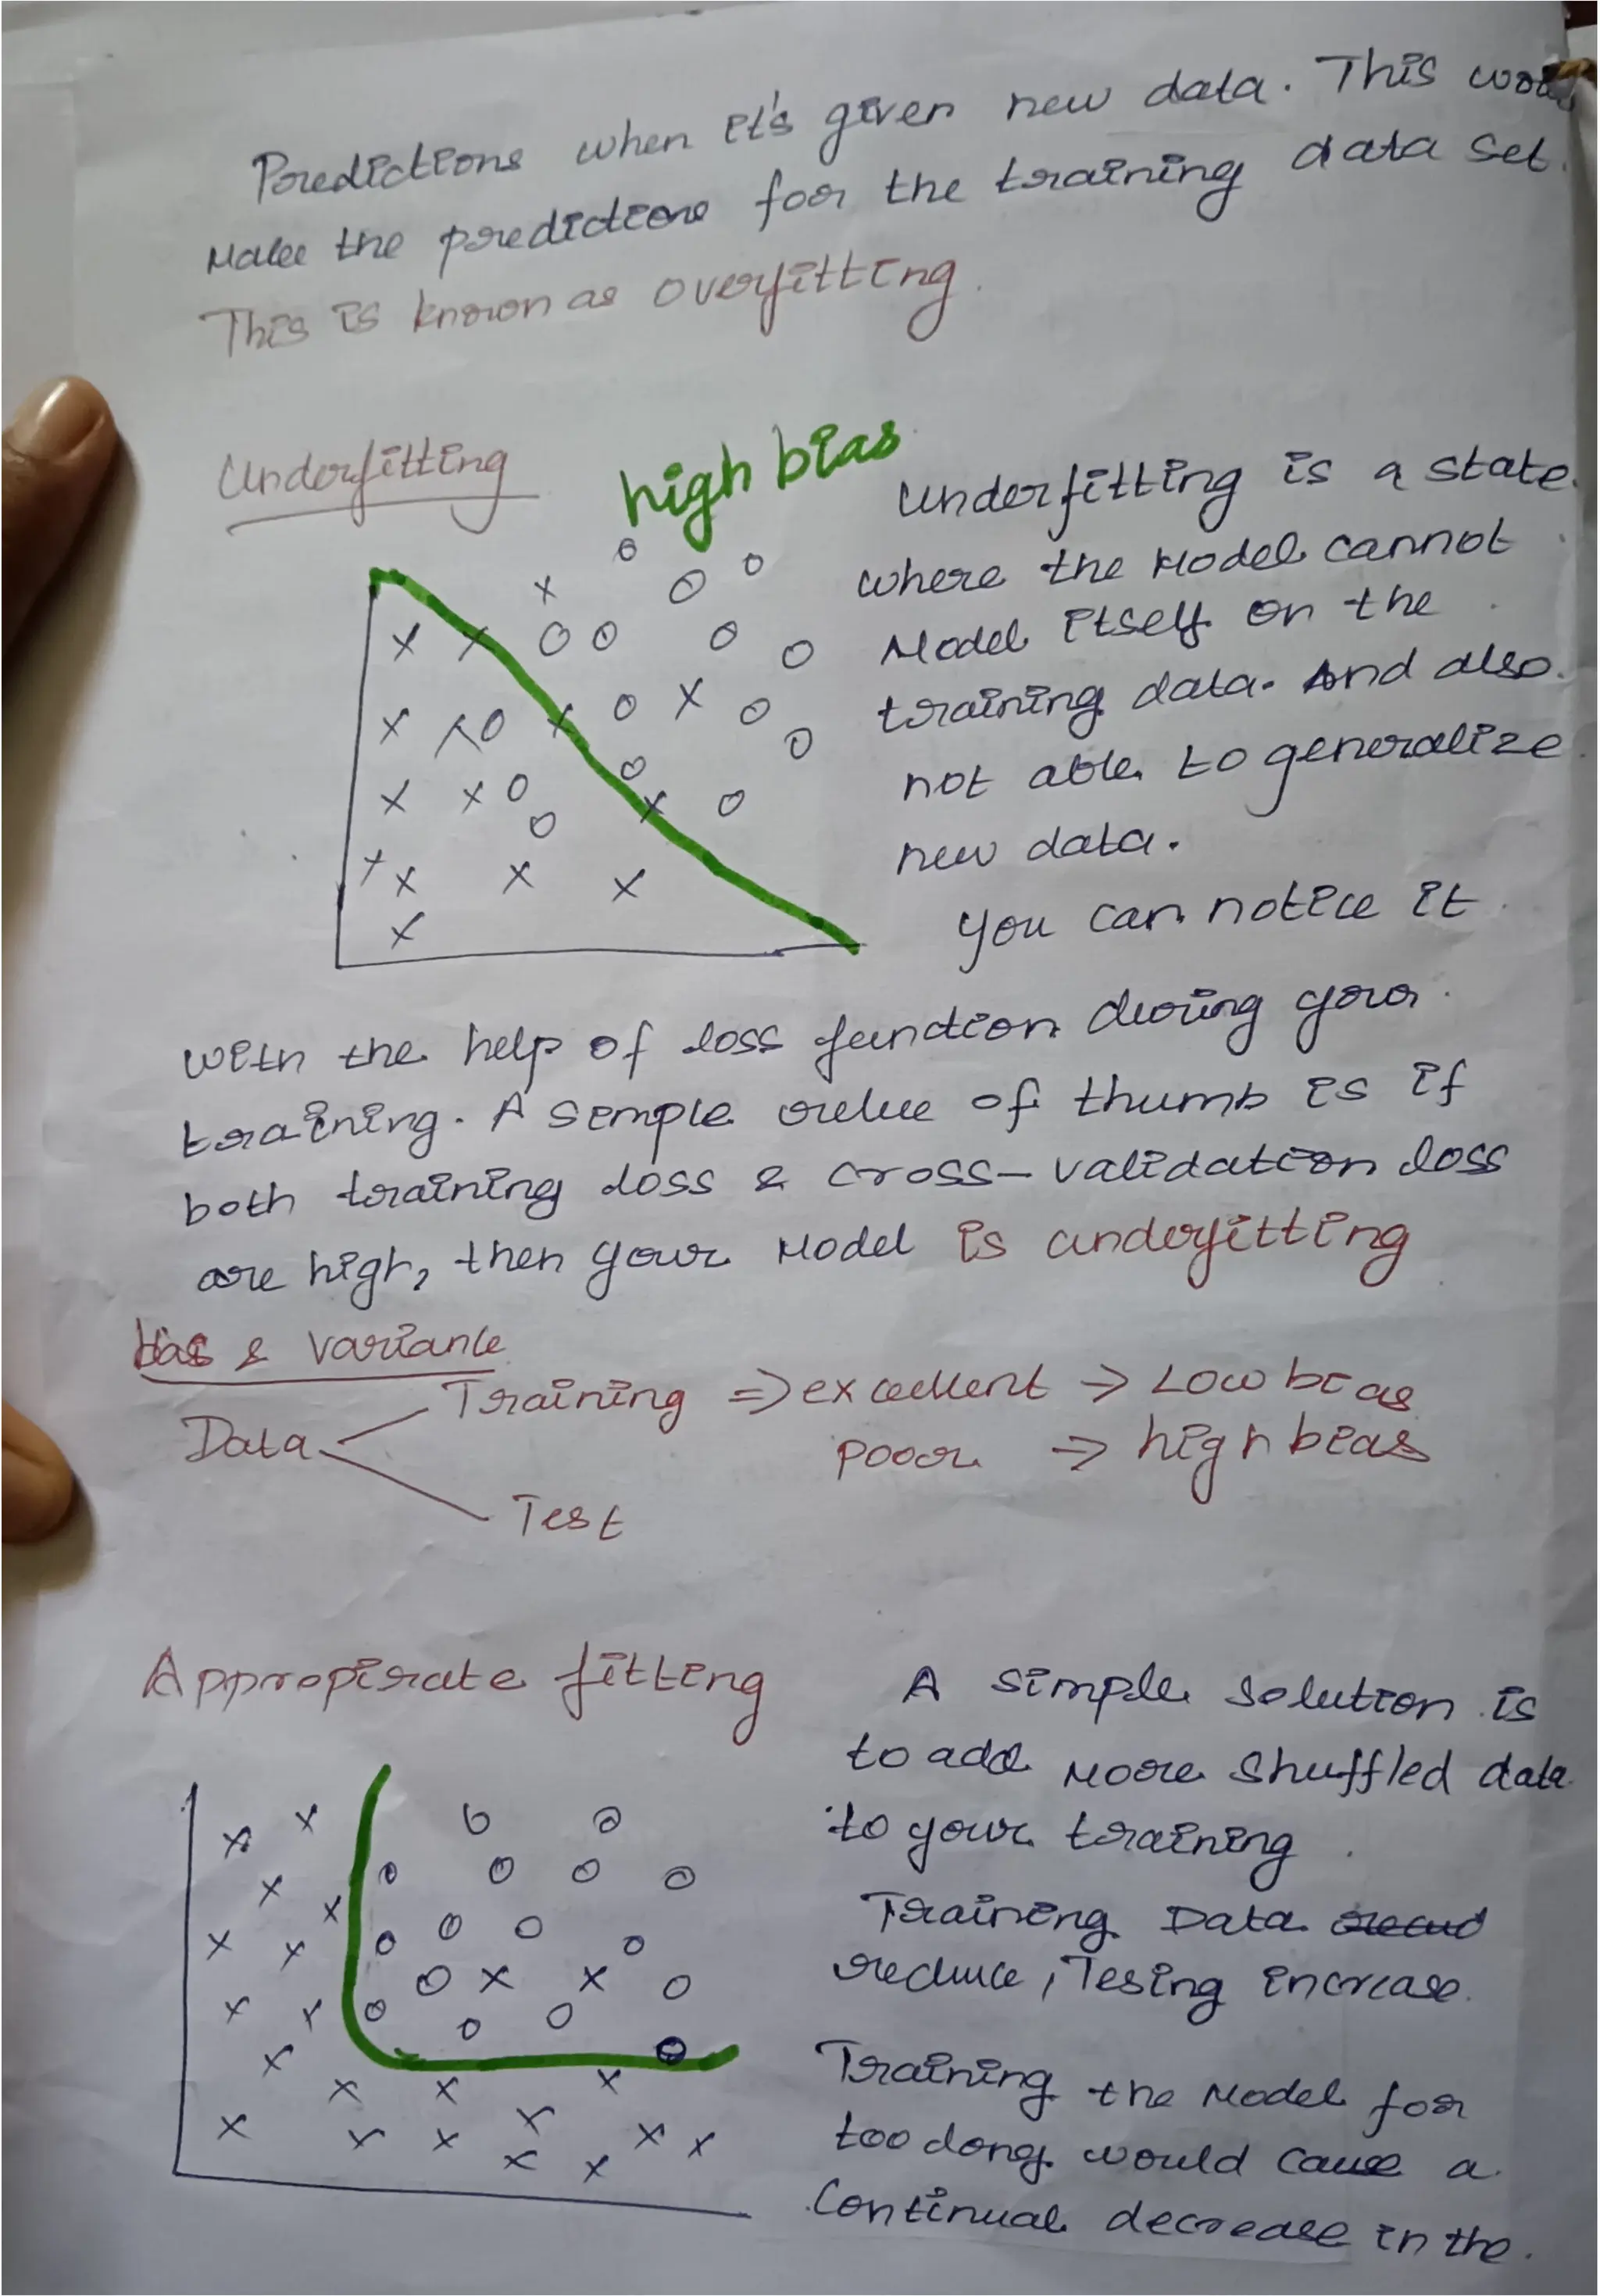 Predictions when it's given new data. This
Make the predictions for the training data set.
This is known as overfitting.
Underfitting
high bias
Underfitting is a state
where the Model cannot
Model itself on the
training data. And also
not able to generalize
new data.
you can notice it
with the help of loss function during your
training. A simple rule of thumb is if
both training loss & cross-validation loss
are high, then your Model is underfitting
bias & variance
Training => excellent -> Low bias
Data
poor => high bias
Test
Appropirate fitting
A simple solution is
to add More shuffled data
to your training
Training Data
reduce, Tesing increase.
Training the Model for
too long would cause a
Continual decrease in the